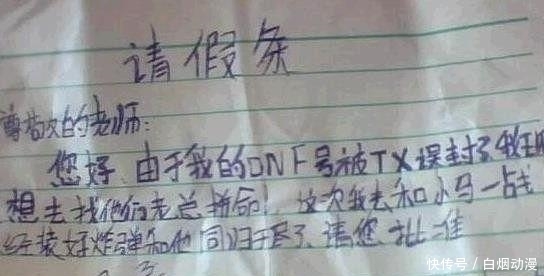 请假条
尊敬的老师:
您好,由于我的DNF号被TX误封了,我现
想去找他们老总拼命!这次我去和小马一战
经装好炸弹和他同归于尽了,请您批准
快传号/白烟动漫